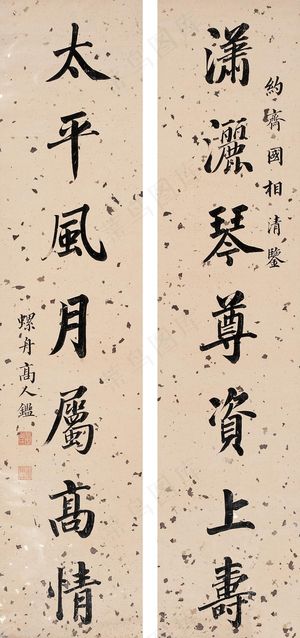 約齋國相清鑒
瀟灑琴尊資上壽
太平風月屬高情
螺舟高人鑑